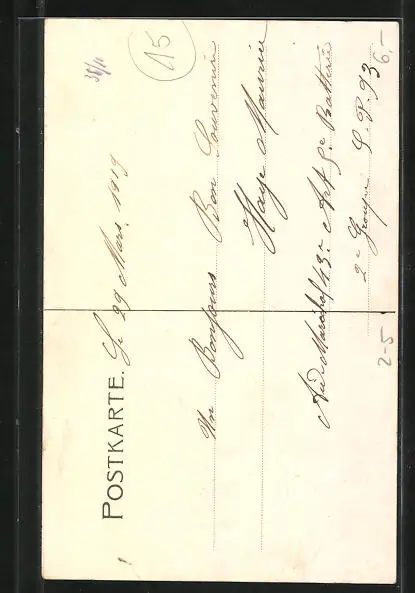 POSTKARTE.
Le 29 Mars 1919
Un Bonjours Bon Souvenir
Haye Maurice
Art 5e Batterie
2e Groupe S. P. 93
15
38/11
6,-
2-5